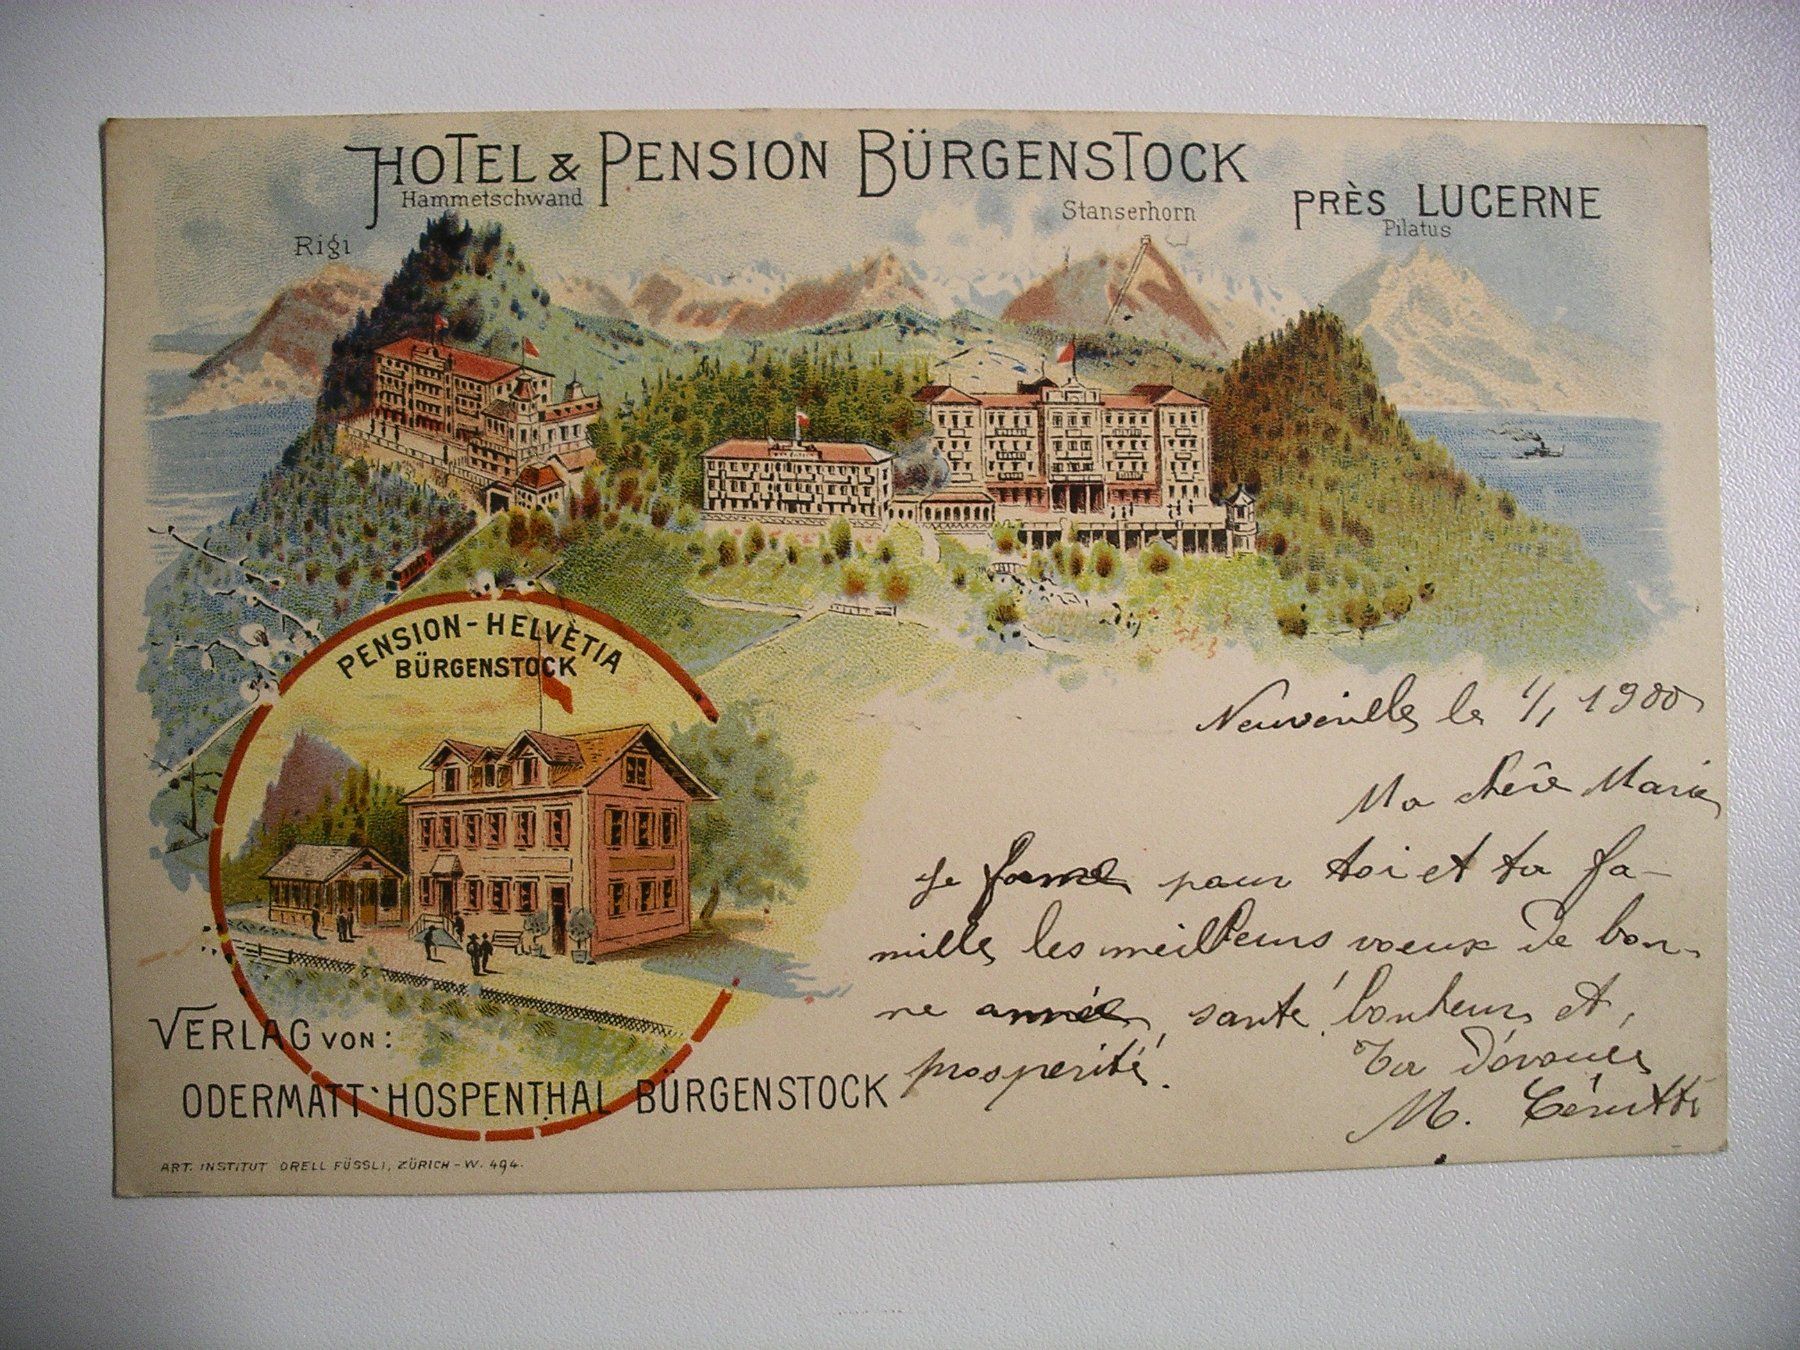 HOTEL & PENSION BÜRGENSTOCK
PRÈS LUCERNE
Hammetschwand
Stanserhorn
Pilatus
Rigi
PENSION-HELVÈTIA
BÜRGENSTOCK
Neuveville le 1/1 1900
Ma chère Marie
Je forme pour toi et ta fa-
mille les meilleurs voeux de bon-
ne année, santé, bonheur et,
prospérité.
Ta dévouée
M. Cérutti
VERLAG VON:
ODERMATT-HOSPENTHAL BÜRGENSTOCK
ART. INSTITUT ORELL FÜSSLI, ZÜRICH - W. 494.